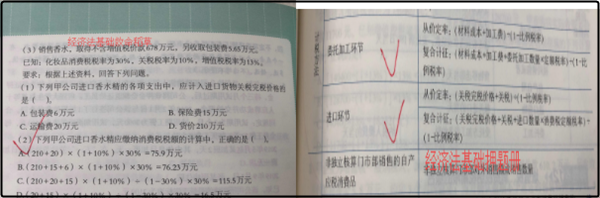 经济法基础救命稻草
(3)销售香水，取得不含增值税价款678万元，另收取包装费5.65万元。
已知：化妆品消费税税率为30%，关税税率为10%，增值税税率为13%。
要求：根据上述资料，回答下列问题。
(1)下列甲公司进口香水精的各项支出中，应计入进口货物关税完税价格的
是( )。
A. 包装费6万元
B. 保险费15万元
C. 运输费20万元
D. 货价210万元
(2)下列甲公司进口香水精应缴纳消费税税额的计算中，正确的是( )。
A. (210+20)×(1+10%)×30%=75.9万元
B. (210+15+6)×(1+10%)×30%=76.23万元
C. (210+20+15)×(1+10%)÷(1-30%)×30%=115.5万元
委托加工环节
从价定率：(材料成本+加工费)÷(1-比例税率)
复合计征：(材料成本+加工费+委托加工数量×定额税率)÷(1-比
例税率)
进口环节
从价定率：(关税完税价格+关税)÷(1-比例税率)
复合计征：(关税完税价格+关税+进口数量×消费税定额税率)÷
(1-比例税率)
非独立核算门市部销售的自产
应税消费品
经济法基础押题册